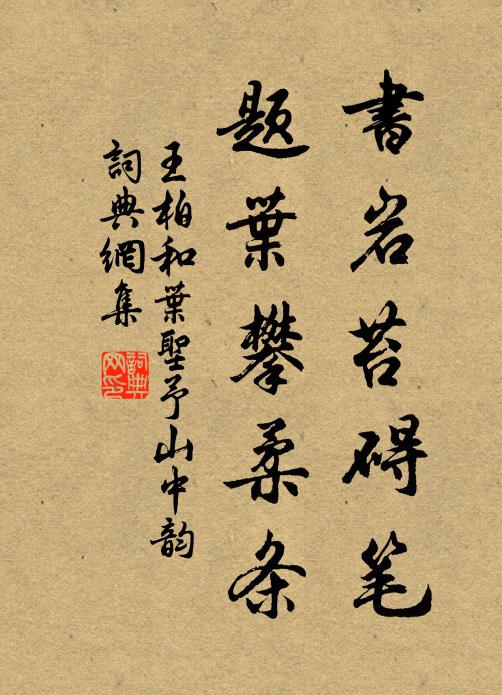 書岩苔碍笔
題葉攀柔条
王柏和葉聖予山中韵
詞典網集
詞典网印